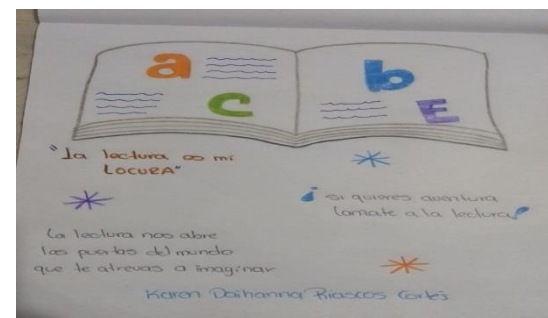 a
b
c
E
"La lectura es mi
LOCURA"
¡ si quieres aventura
lanzate a la lectura!
La lectura nos abre
las puertas del mundo
que te atrevas a imaginar
Karen Daihanna Riascos Cortés